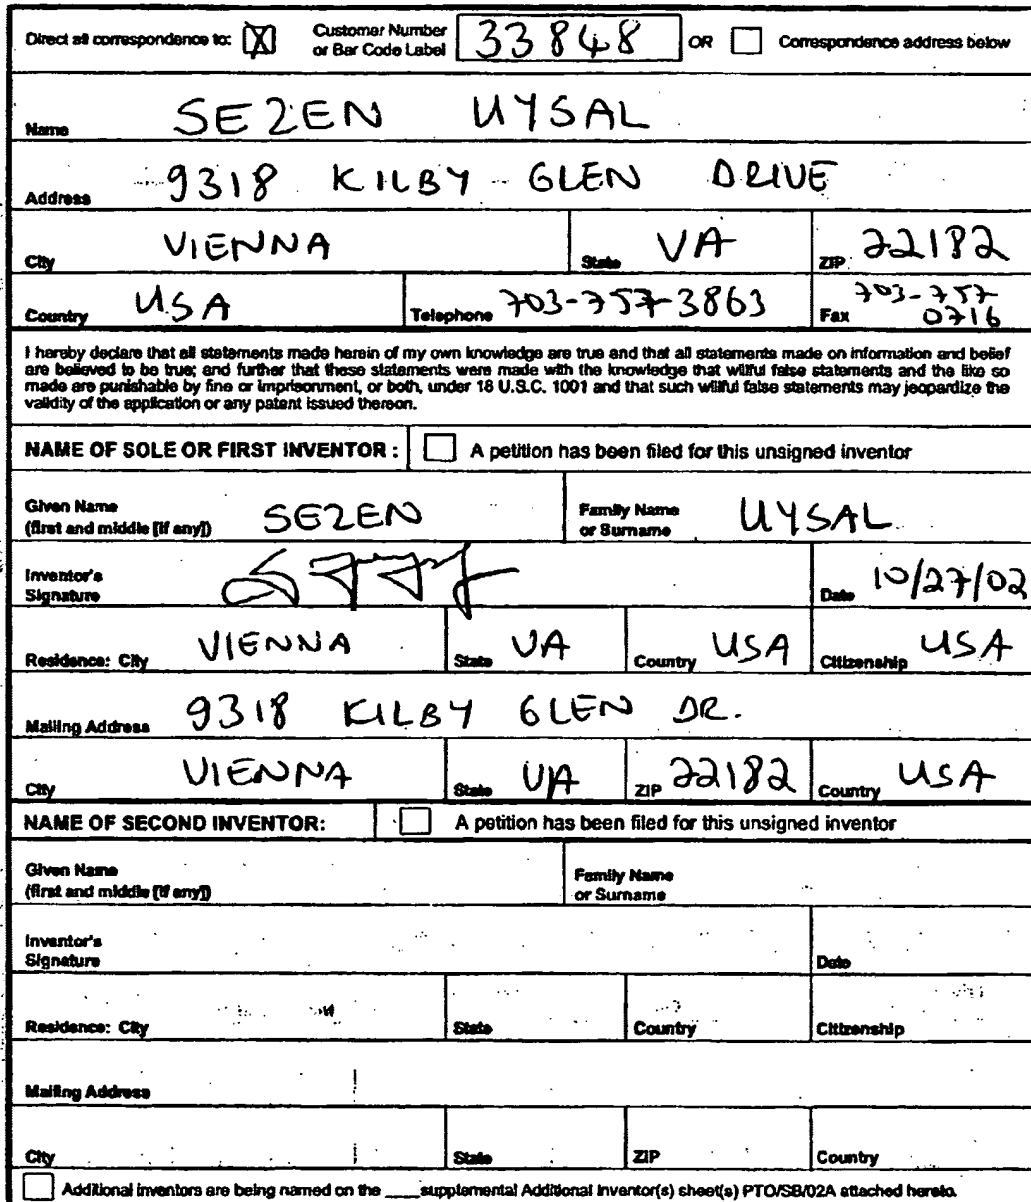 Direct all correspondence to: Customer Number or Bar Code Label 33848 OR Correspondence address below
Name SEZEN UYSAL
Address 9318 KILBY GLEN DRIVE
City VIENNA State VA ZIP 22182
Country USA Telephone 703-757-3863 Fax 703-757-0716
I hereby declare that all statements made herein of my own knowledge are true and that all statements made on information and belief
are believed to be true; and further that these statements were made with the knowledge that willful false statements and the like so
made are punishable by fine or imprisonment, or both, under 18 U.S.C. 1001 and that such willful false statements may jeopardize the
validity of the application or any patent issued thereon.
NAME OF SOLE OR FIRST INVENTOR : A petition has been filed for this unsigned inventor
Given Name (first and middle [if any]) SEZEN Family Name or Surname UYSAL
Inventor's Signature Date 10/27/02
Residence: City VIENNA State VA Country USA Citizenship USA
Mailing Address 9318 KILBY GLEN DR.
City VIENNA State VA ZIP 22182 Country USA
NAME OF SECOND INVENTOR: A petition has been filed for this unsigned inventor
Given Name (first and middle [if any]) Family Name or Surname
Inventor's Signature Date
Residence: City State Country Citizenship
Mailing Address
City State ZIP Country
Additional inventors are being named on the ____supplemental Additional Inventor(s) sheet(s) PTO/SB/02A attached hereto.